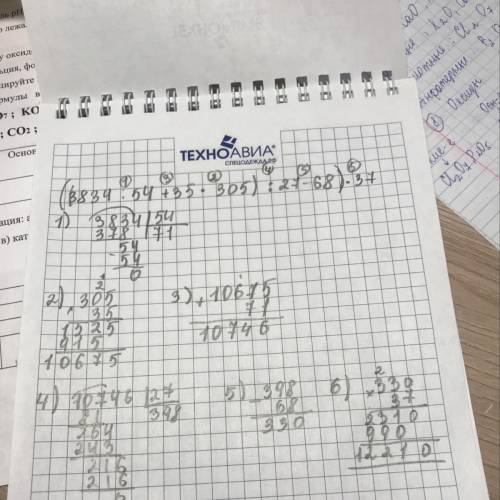 ТЕХНОАВИА
СПЕЦОДЕЖДА.РФ
((3834 : 54 + 35 · 305) : 27 - 68) · 37
1) 3834 | 54
378 | 71
54
- 54
0
2) 305
× 35
1525
915
10675
3) + 10675
71
10746
4) 10746 | 27
81 | 398
264
243
216
216
0
5) - 398
68
330
6) 330
× 37
2310
990
12210
; CO₂ ;
Основ
в) кат